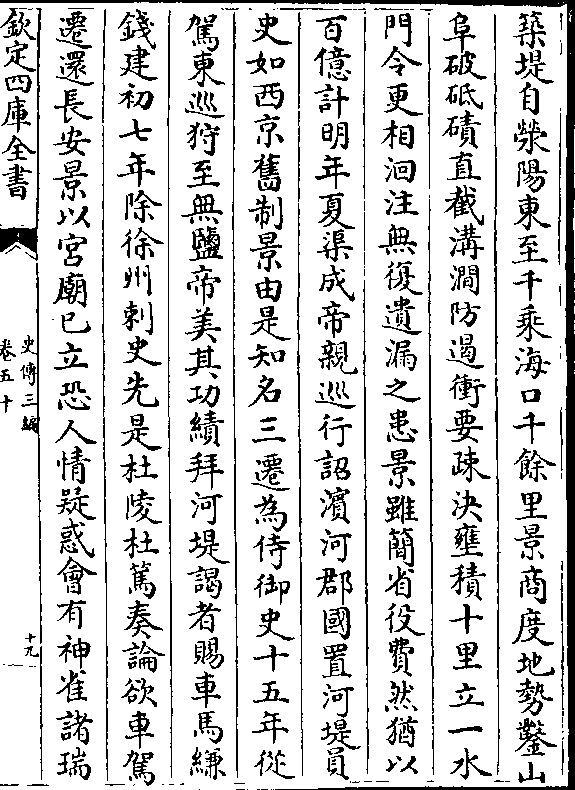 築堤自滎陽東至千乘海口千餘里景商度地勢鑿山
阜破砥磧直截溝澗防遏衝要疎決壅積十里立一水
門令更相洄注無復遺漏之患景雖簡省役費然猶以
百億計明年夏渠成帝親巡行詔濱河郡國置河堤員
史如西京舊制景由是知名三遷為侍御史十五年從
駕東巡狩至無鹽帝美其功績拜河堤謁者賜車馬縑
錢建初七年除徐州刺史先是杜陵杜篤奏論欲車駕
遷還長安景以宮廟已立恐人情疑惑會有神雀諸瑞
欽定四庫全書
史傳三編
卷五十
十九